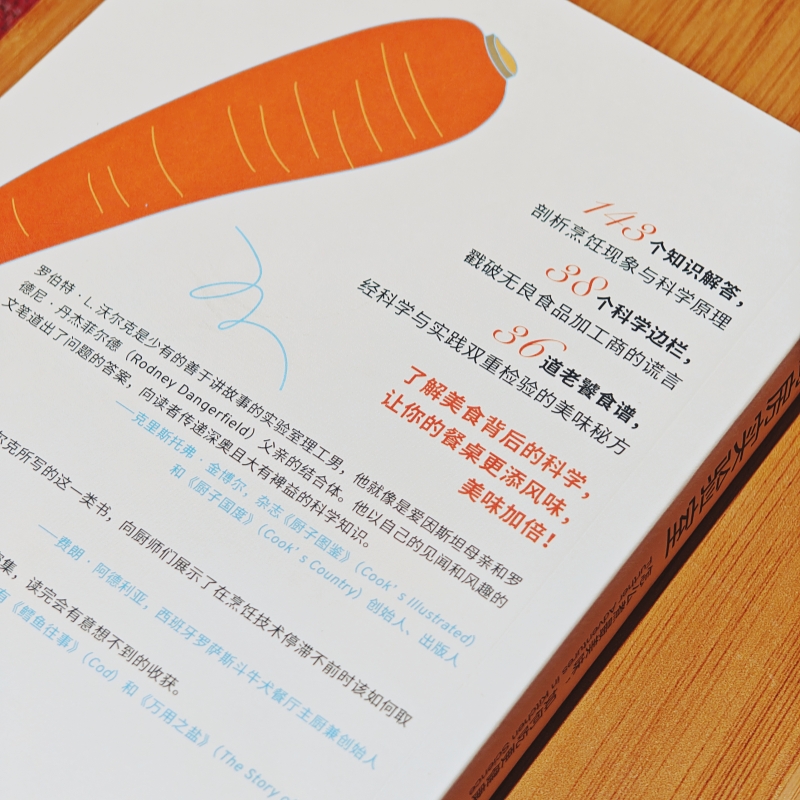 143个知识解答，
剖析烹饪现象与科学原理
38个科学边栏，
戳破无良食品加工商的谎言
36道老饕食谱，
经科学与实践双重检验的美味秘方
了解美食背后的科学，
让你的餐桌更添风味，
美味加倍！
罗伯特·L.沃尔克是少有的善于讲故事的实验室理工男，他就像是爱因斯坦母亲和罗
德尼·丹杰菲尔德（Rodney Dangerfield）父亲的结合体。他以自己的见闻和风趣的
文笔道出了问题的答案，向读者传递深奥且大有裨益的科学知识。
——克里斯托弗·金博尔，杂志《厨子图鉴》（Cook's Illustrated）
和《厨子国度》（Cook's Country）创始人、出版人
尔克所写的这一类书，向厨师们展示了在烹饪技术停滞不前时该如何取
——费朗·阿德利亚，西班牙罗萨斯斗牛犬餐厅主厨兼创始人
集，读完会有意想不到的收获。
有《鳕鱼往事》（Cod）和《万用之盐》（The Story o